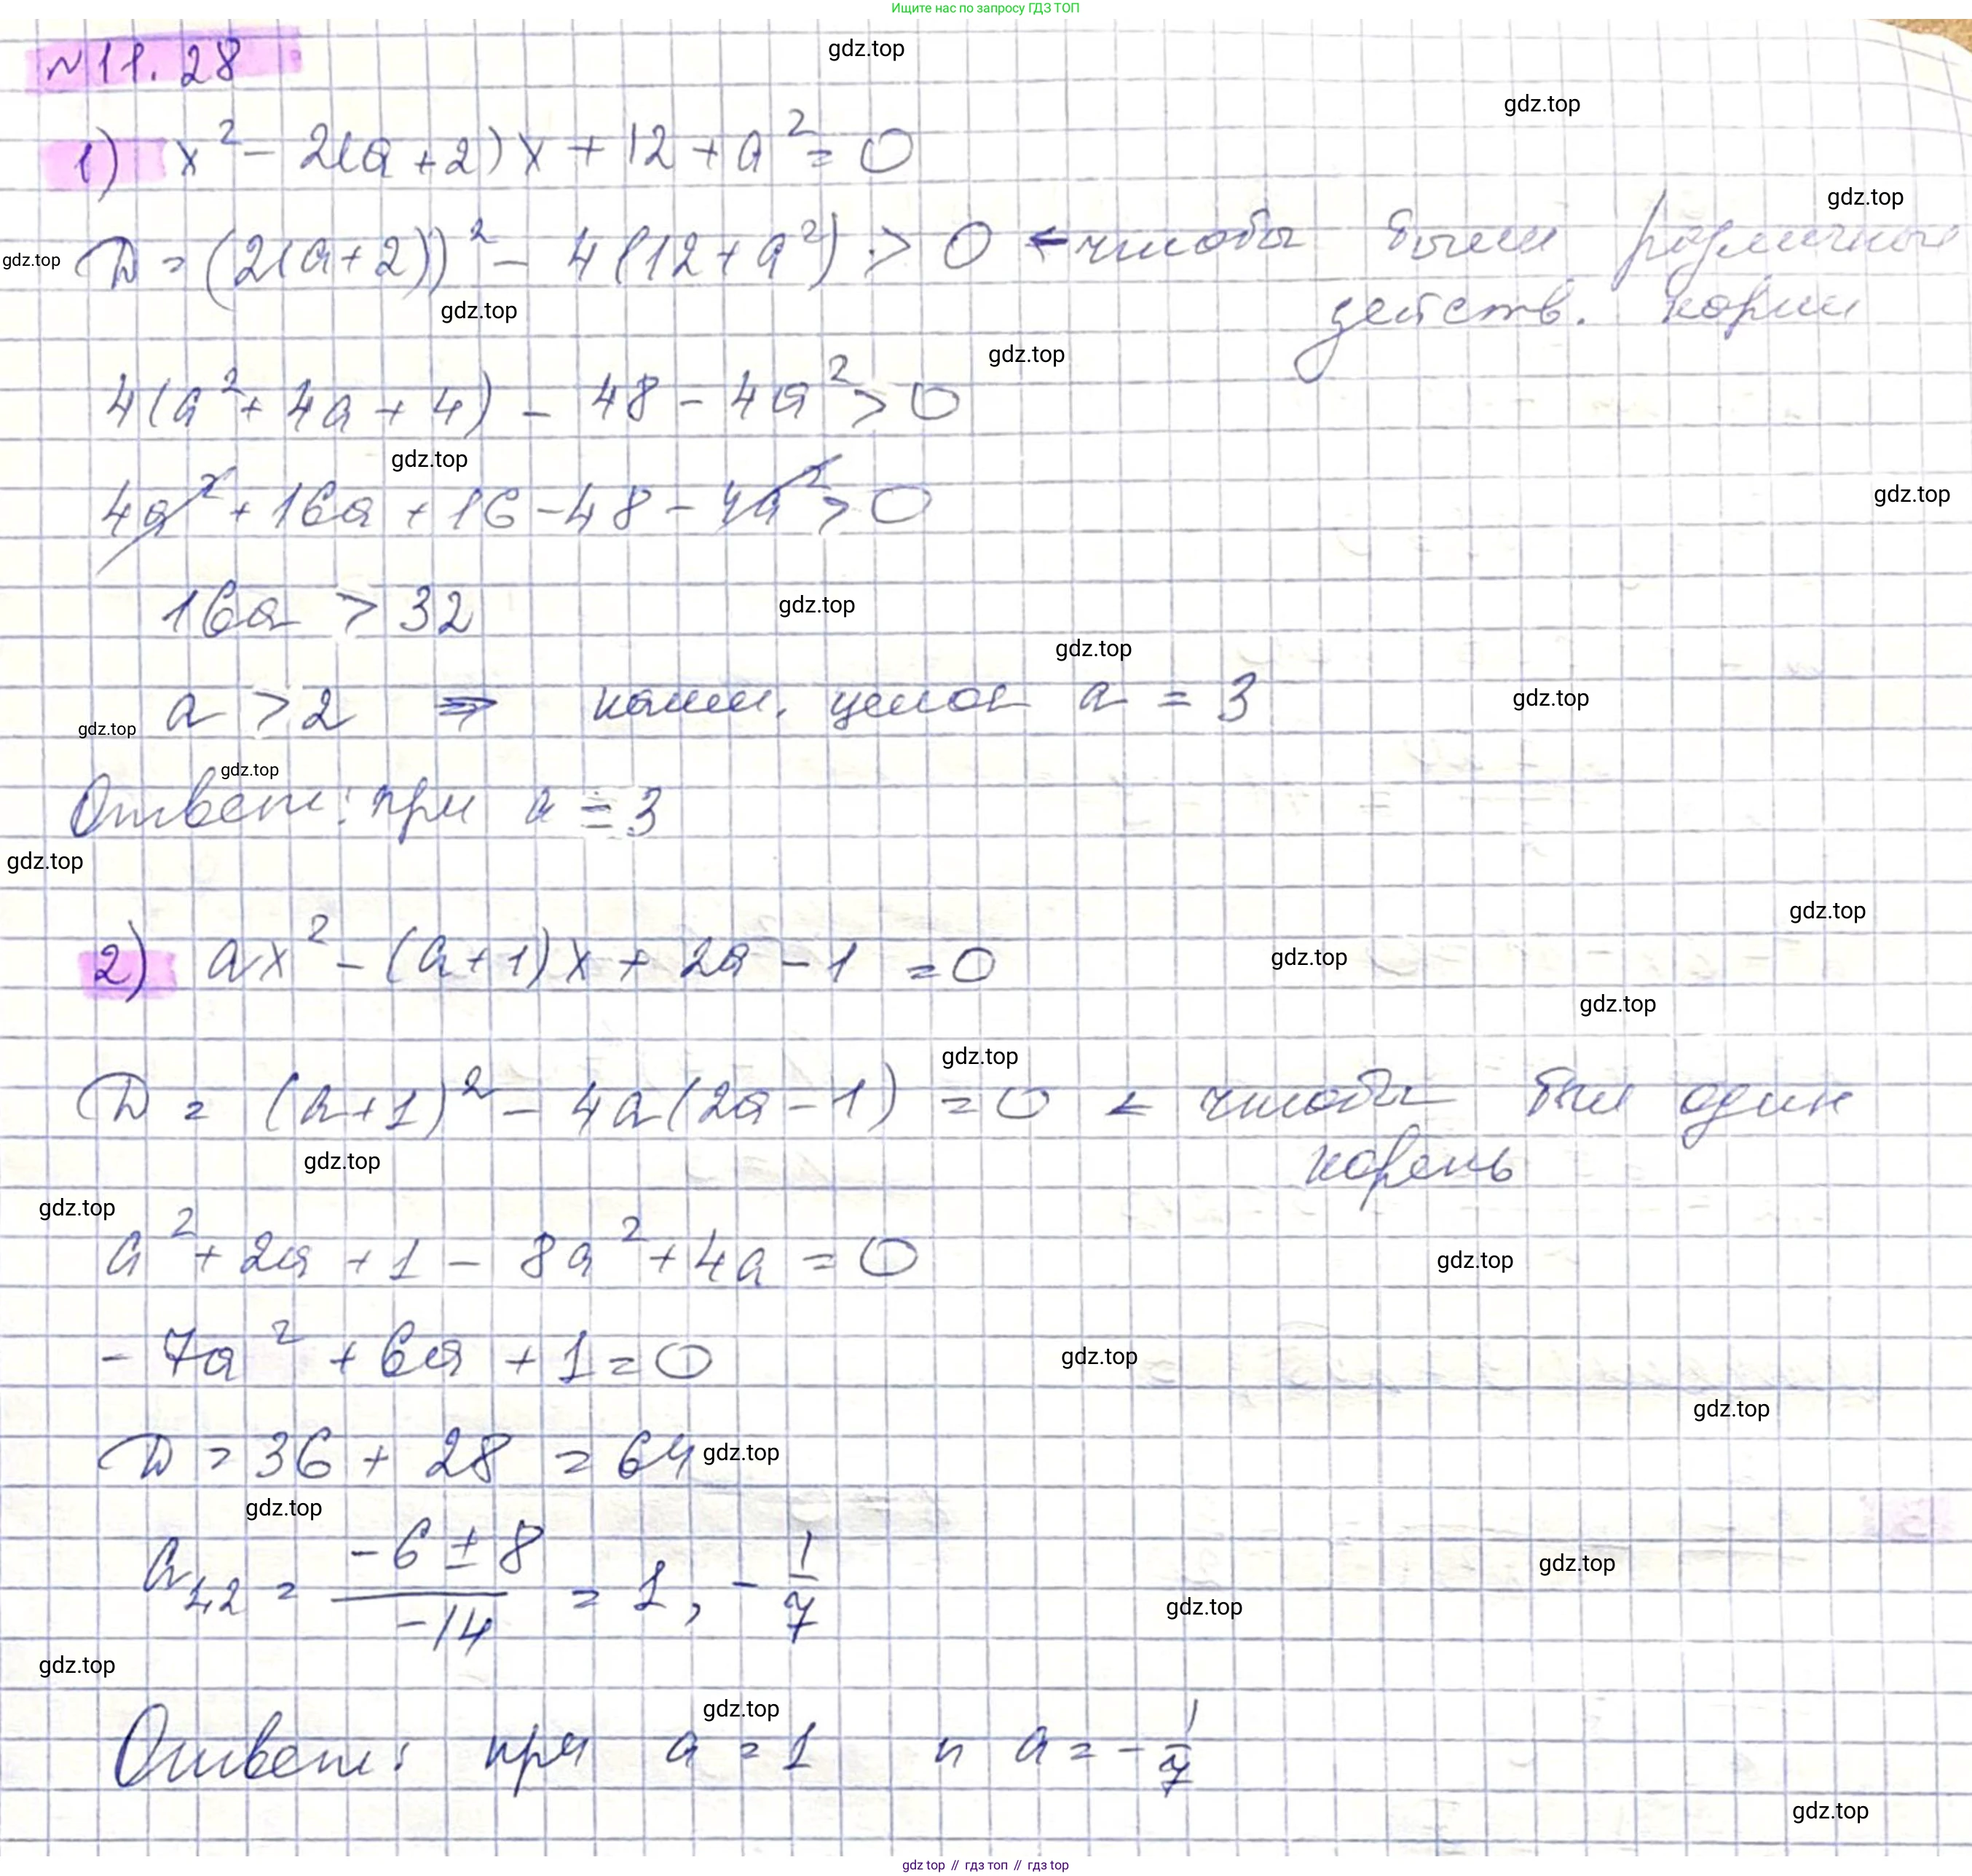 Ищите нас по запросу ГДЗ ТОП
№11.28
gdz.top
gdz.top
1) x² - 2(a+2)x + 12 + a² = 0
gdz.top
gdz.top
D = (2(a+2))² - 4(12+a²) > 0 ← чтобы были различные
действ. корни
gdz.top
gdz.top
4(a² + 4a + 4) - 48 - 4a² > 0
gdz.top
gdz.top
4a² + 16a + 16 - 48 - 4a² > 0
16a > 32
gdz.top
gdz.top
a > 2 ⇒ наим. целое a = 3
gdz.top
gdz.top
gdz.top
Ответ: при a = 3
gdz.top
gdz.top
2) ax² - (a+1)x + 2a - 1 = 0
gdz.top
gdz.top
gdz.top
D = (a+1)² - 4a(2a-1) = 0 ← чтобы был один
корень
gdz.top
gdz.top
a² + 2a + 1 - 8a² + 4a = 0
gdz.top
-7a² + 6a + 1 = 0
gdz.top
gdz.top
D = 36 + 28 = 64
gdz.top
gdz.top
a₁,₂ = (-6 ± 8)/(-14) = 1, -1/7
gdz.top
gdz.top
gdz.top
gdz.top
Ответ: при a = 1 и a = -1/7
gdz.top
gdz top // гдз топ // gdz top